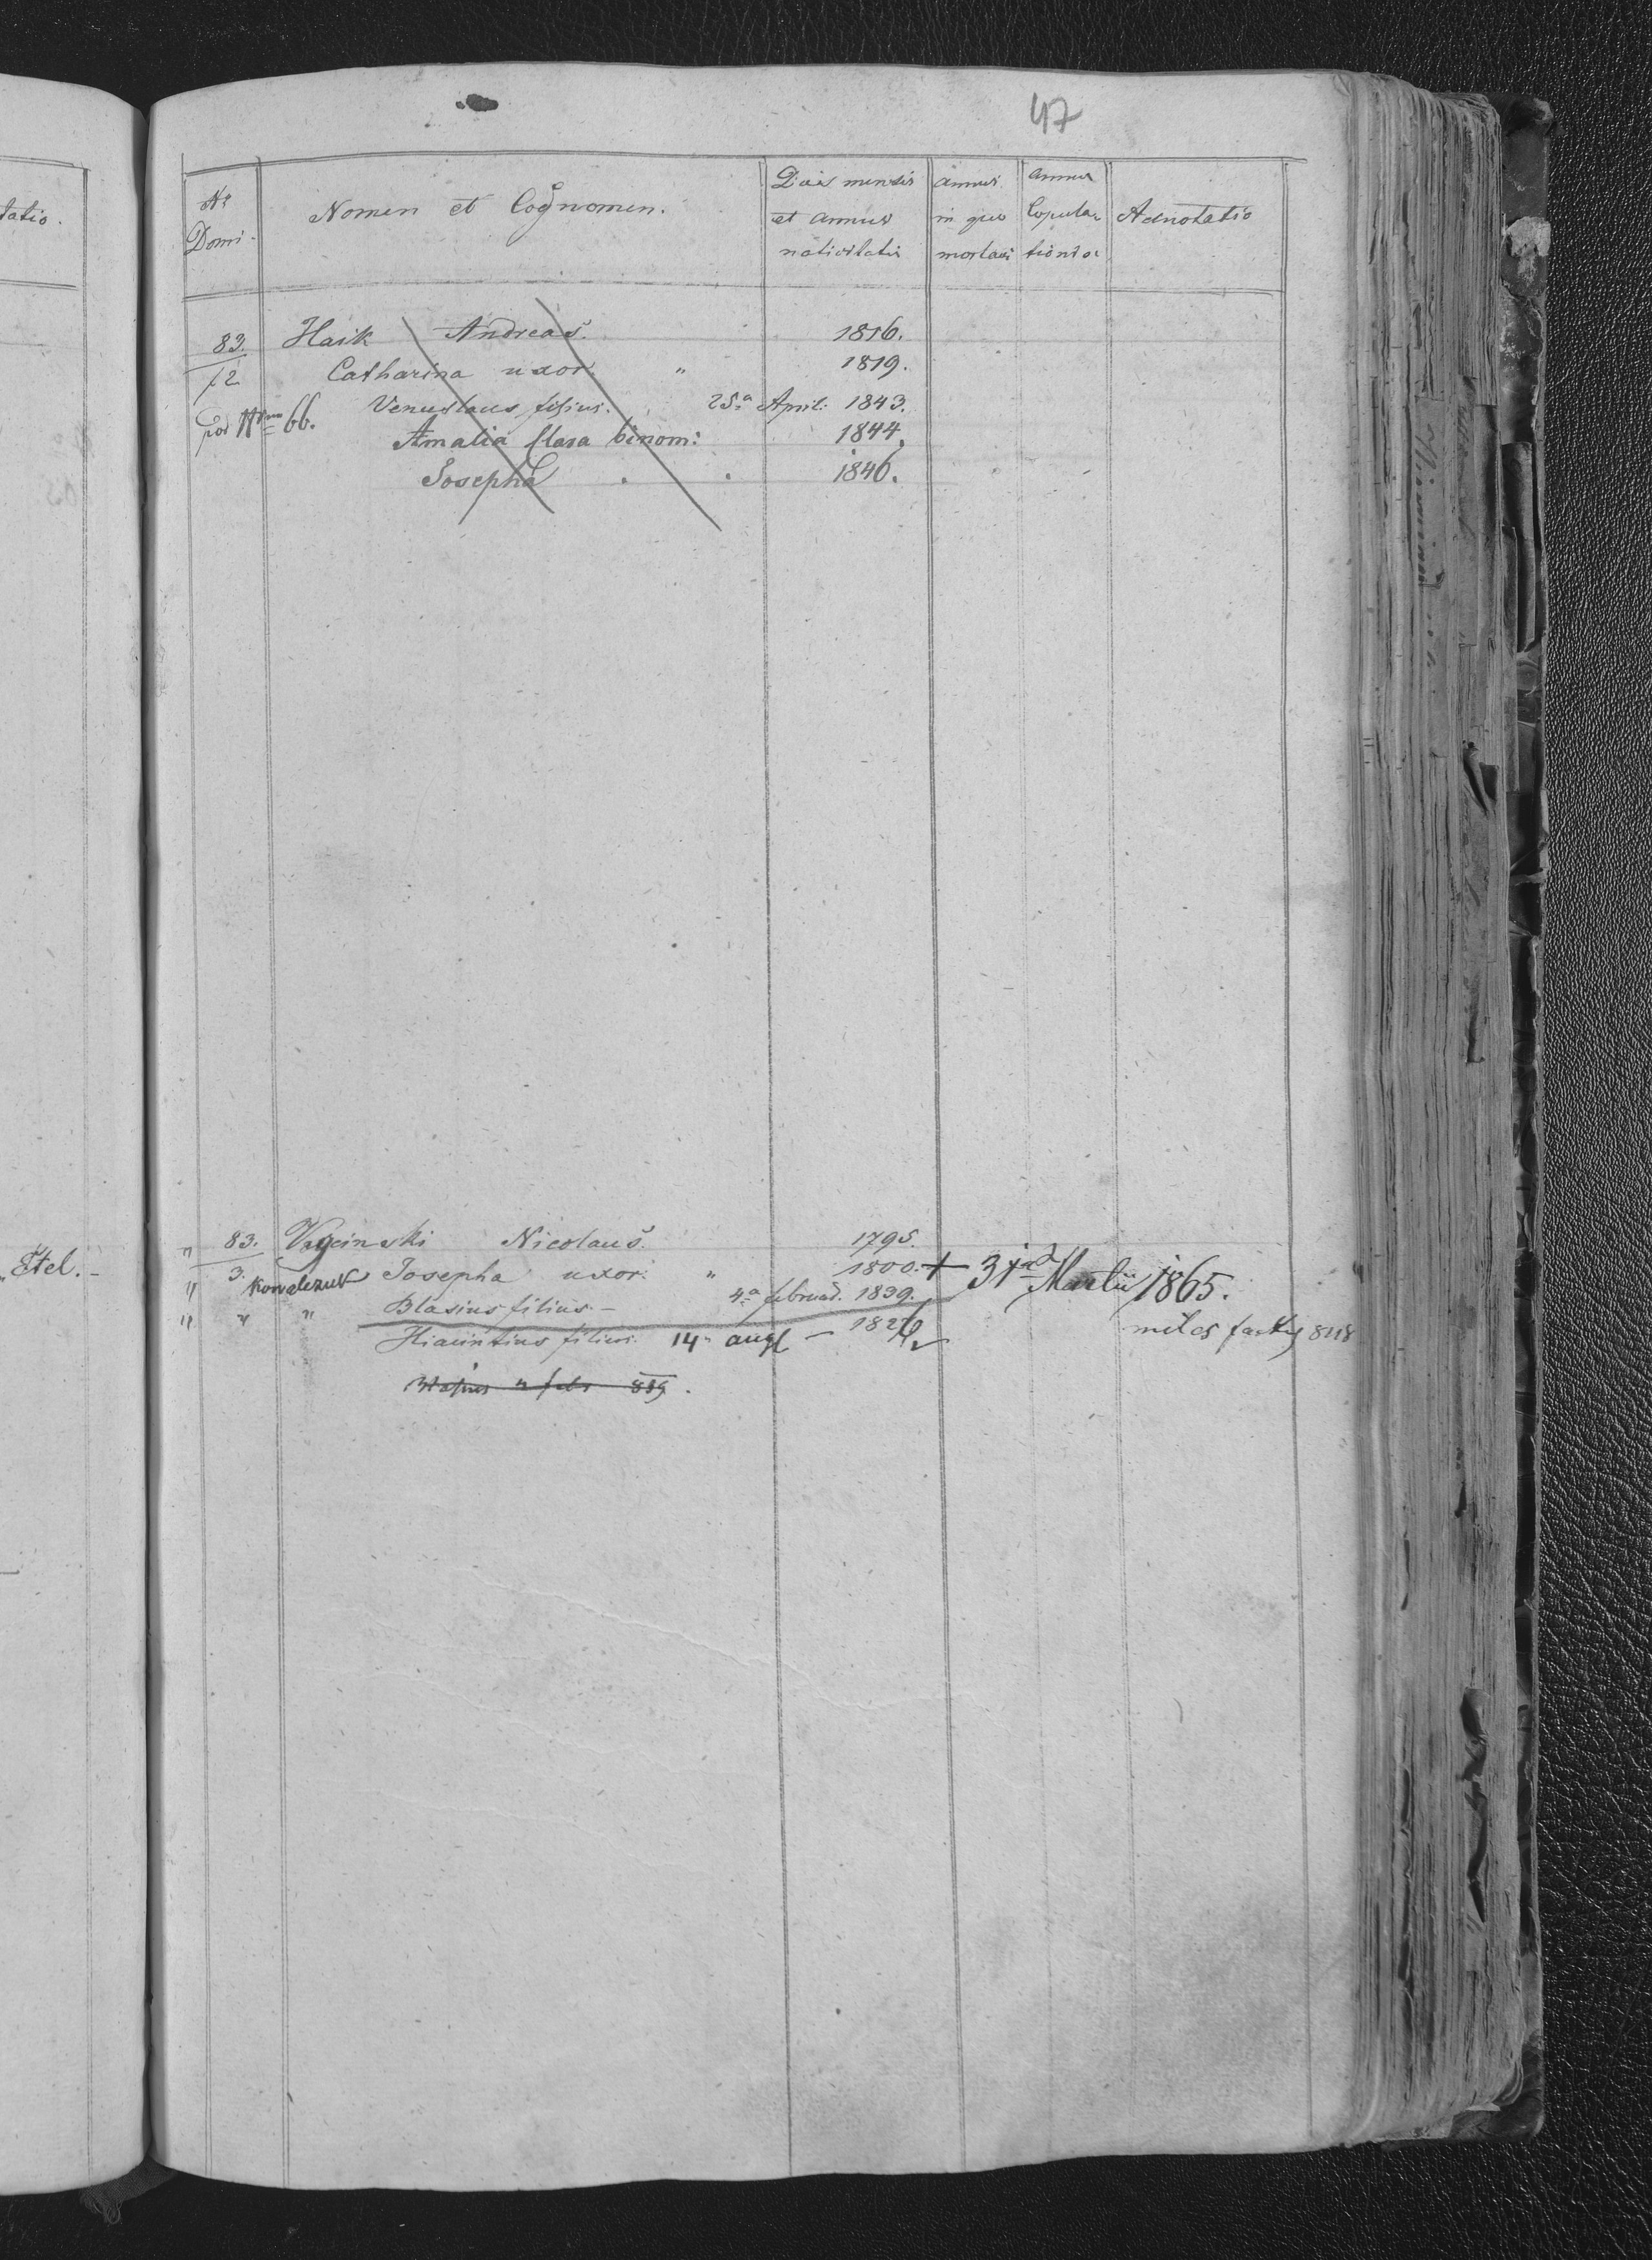 tatio.
Etel. -
47
No Domi. Nomen et Cognomen. Dies mensis et annus nativitatis annus in quo mortuus annus Copulationis: Adnotatio
83. Haik Andreas. 1816.
/2 Catharina uxor. " 1819.
pod Nrum 66. Venuslaus filius. 25a April: 1843.
Amalia Clara binom: 1844.
Josepha . . 1846.
" 83. Nicolaus. 1795.
" 3. Kowalczuk Josepha uxor. " 1800. + 31 Martii 1865.
" " " Blasius filius. - 4a februar. 1839.
Hiacintius filius. 14a augt - 1826 miles factus 848
Blasius 4 febr 839.